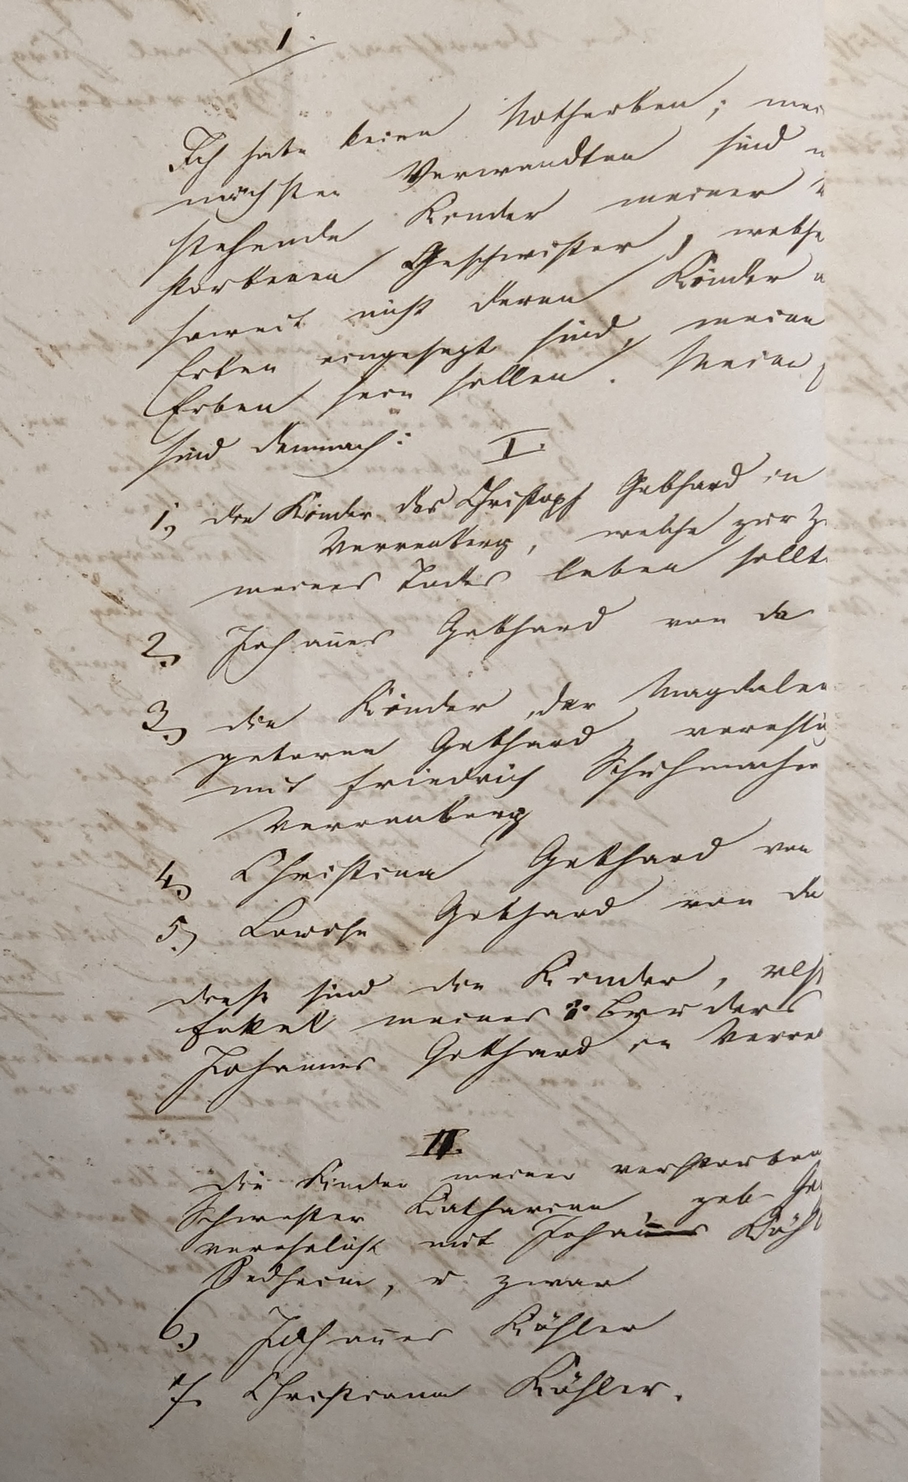 1.
Ich habe keine Notherben; mei
nächsten Verwandten sind
stehende Kinder meiner
storbenen Geschwister, welche
soweit nicht deren Kinder
Erben eingesezt sind, meine
Erben sein sollen. Meine
sind demnach:
I.
1., die Kinder des Christoph Gebhard in
Verrenberg, welche zur Z
meines Todes leben sollt
2., Johannes Gebhard von da
3., die Kinder der Magdalen
geborene Gebhard, verehli
mit Friedrich Schuhmacher
Verrenberg
4., Christina Gebhard von
5., Gebhard von da
diese sind die Kinder, resp
Enkel meines Bruders
Johannes Gebhard in Verre
II.
Die Kinder meiner verstorben
Schwester Katharina geb. Ge
verehelicht mit Johannes Köhl
, u. zwar
6., Johannes Köhler
7. Christiana Köhler.